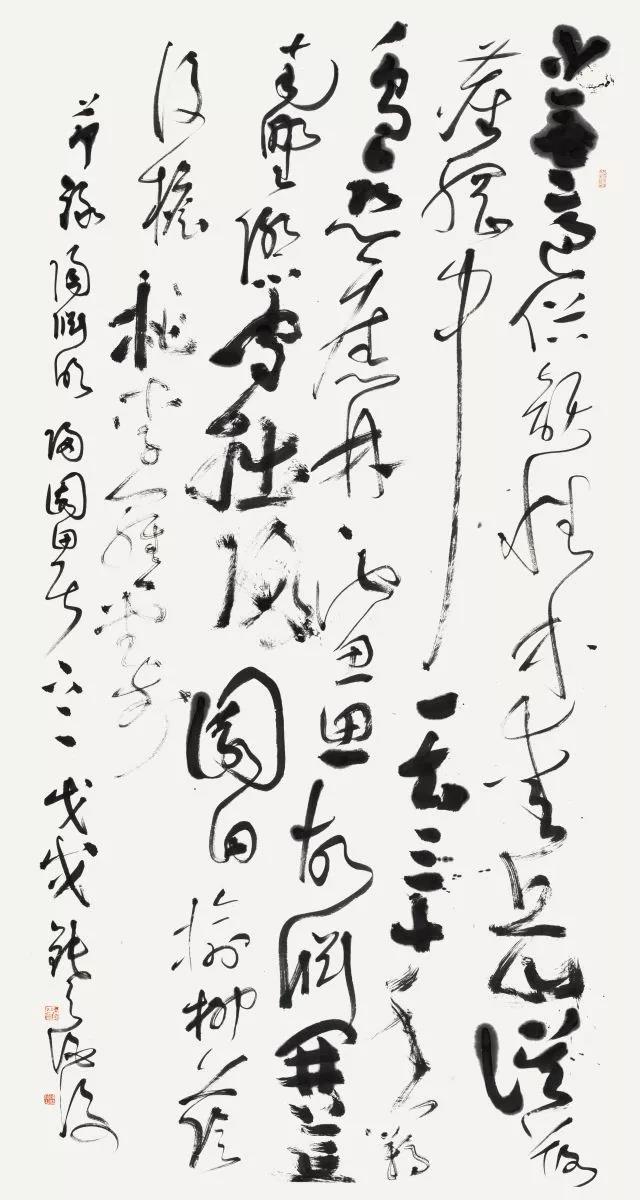 少無適俗韻性本愛丘山誤落
塵網中一去三十年羈
鳥戀舊林池魚思故淵開荒
南野際守拙歸園田榆柳蔭
後檐桃李羅堂前
節錄陶淵明歸園田居 戊戌